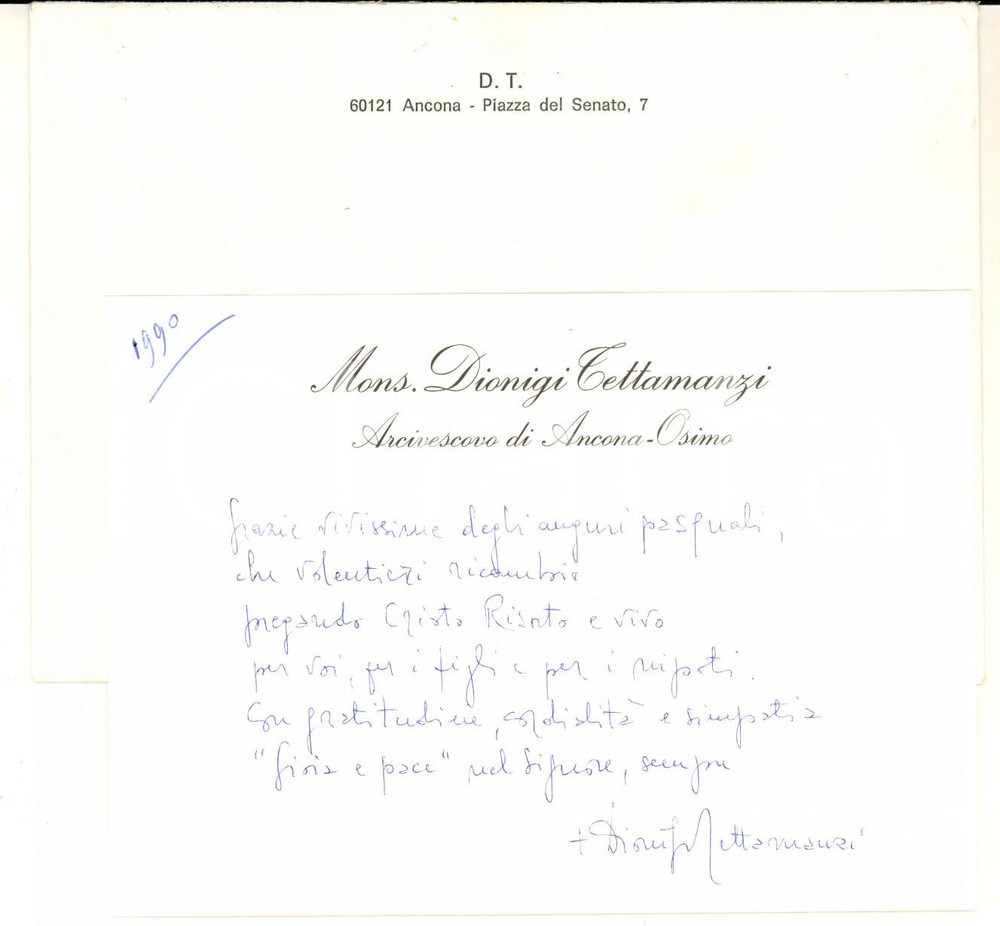 D. T.
60121 Ancona - Piazza del Senato, 7
1990
Mons. Dionigi Tettamanzi
Arcivescovo di Ancona-Osimo
Grazie vivissime degli auguri pasquali,
che volentieri ricambio
pregando Cristo Risorto e vivo
per voi, per i figli e per i nipoti.
Con gratitudine, cordialità e simpatia
"Gioia e pace" nel Signore, sempre
+ Dionigi Tettamanzi